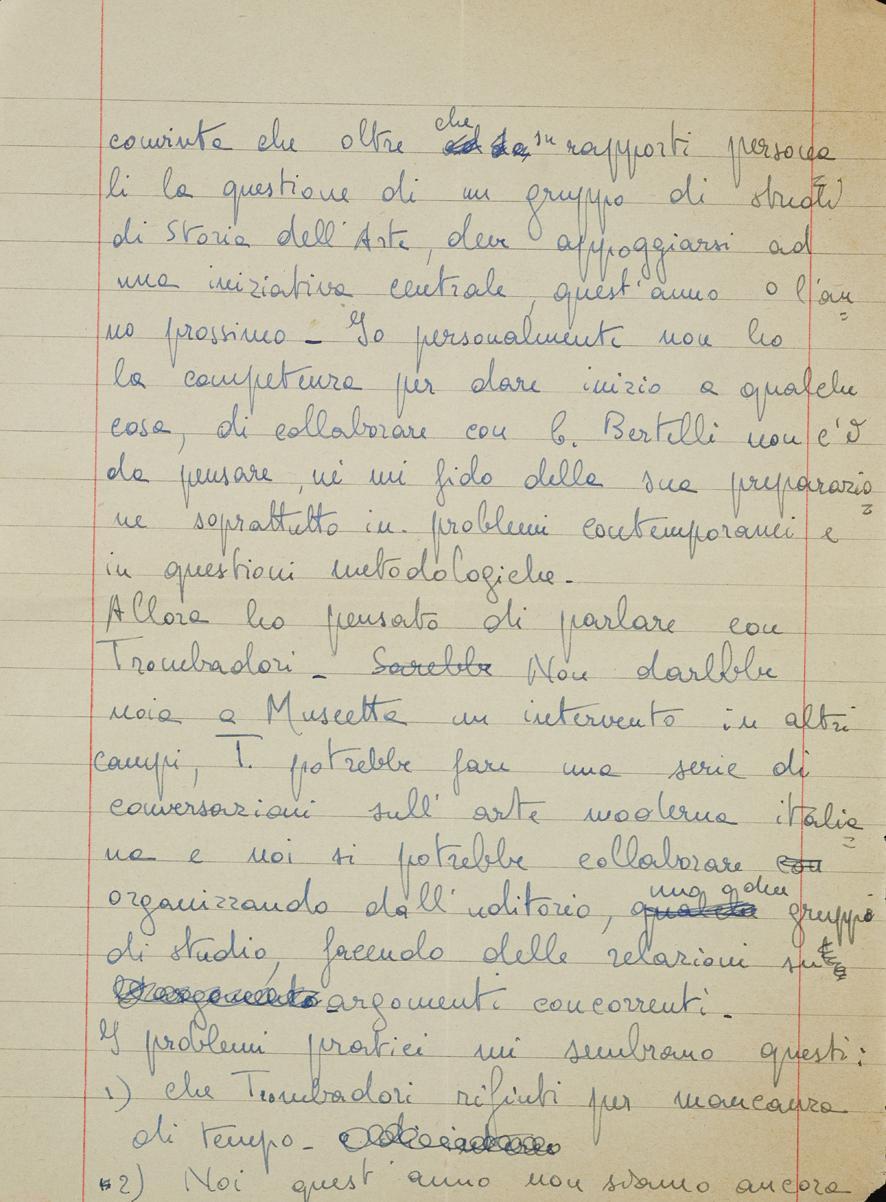 convinta che oltre che su rapporti persona
li la questione di un gruppo di studi
di Storia dell'Arte, deve appoggiarsi ad
una iniziativa centrale, quest'anno o l'an
no prossimo - Io personalmente non ho
la competenza per dare inizio a qualche
cosa, di collaborare con C. Bertelli non c'è
da pensare, né mi fido della sua preparazio
ne soprattutto in problemi contemporanei e
in questioni metodologiche.
Allora ho pensato di parlare con
Trombadori - Sarebbe Non darebbe
noia a Muscetta un intervento in altri
campi, T. potrebbe fare una serie di
conversazioni sull'arte moderna italia
na e noi si potrebbe collaborare con
organizzando dall'uditorio, qualche uno o due gruppi
di studio, facendo delle relazioni su
argomenti concorrenti.
I problemi pratici mi sembrano questi:
1) che Trombadori rifiuti per mancanza
di tempo -
2) Noi quest'anno non siamo ancora